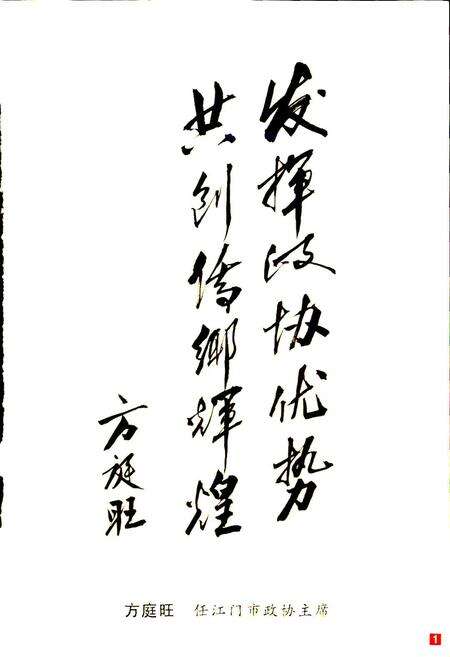 发揮政协优势
共创僑鄉輝煌
方庭旺
方庭旺 任江门市政协主席
1